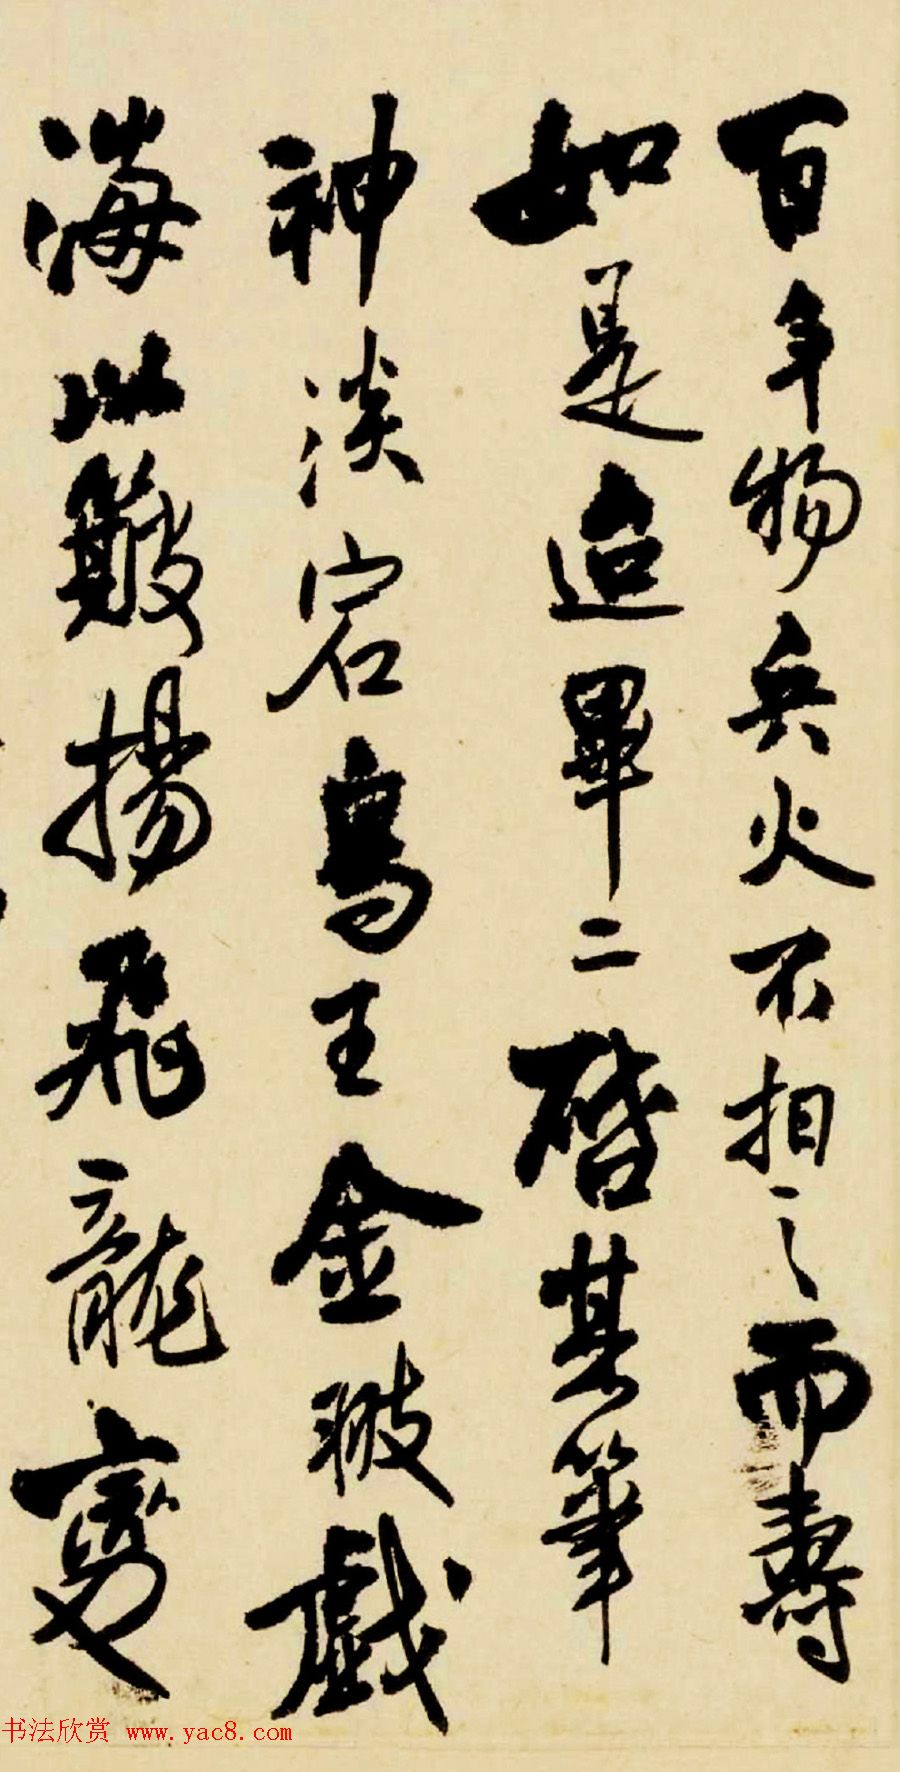 百年物兵火不相之而壽
如是迨畢二啓其筆
神淡宕鳥王金翅戲
海以簸揚飛龍變
书法欣赏 www.yac8.com